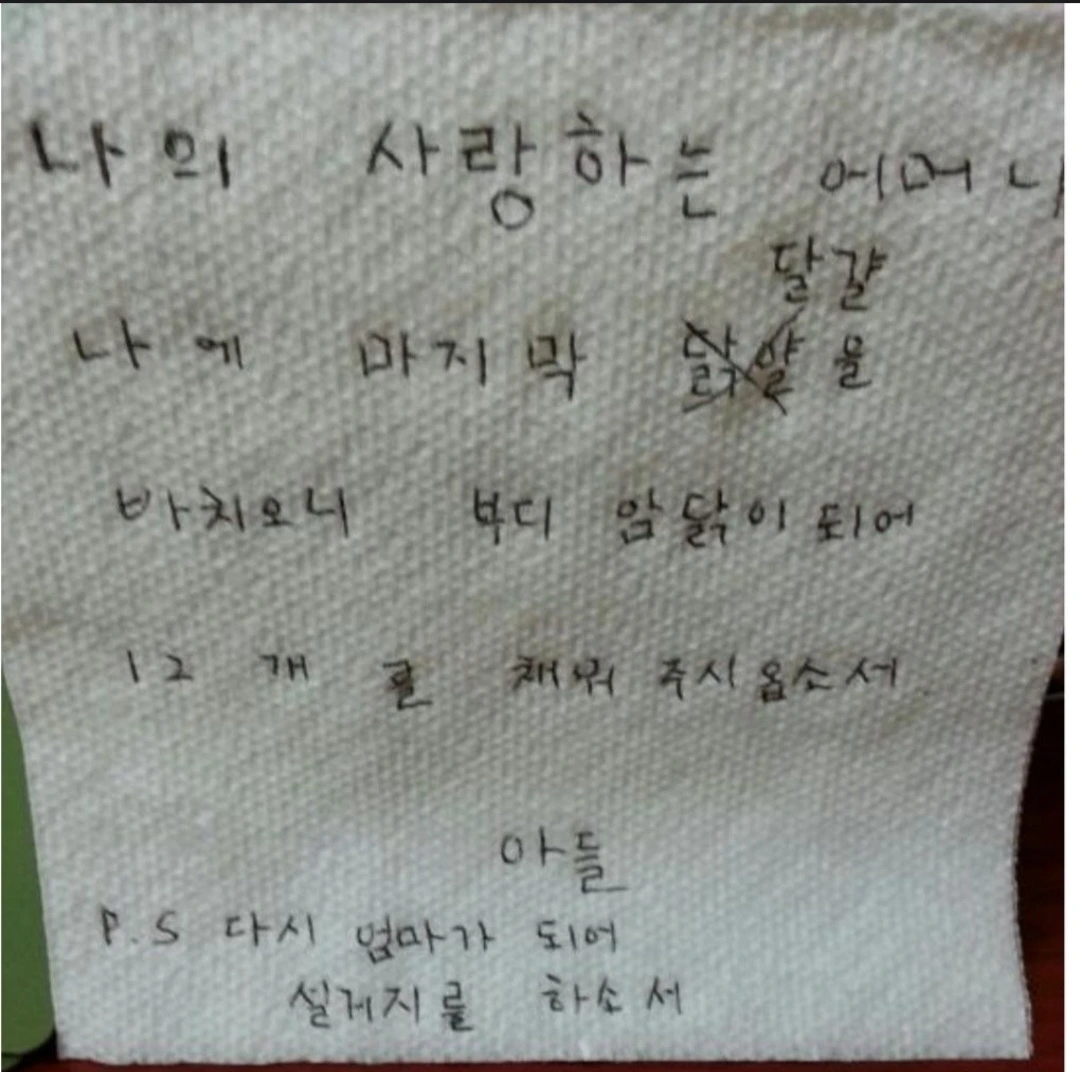 나의 사랑하는 어머니
달걀
나에 마지막 닭알을
바치오니 부디 암닭이 되어
12 개를 채워 주시옵소서
아들
P.S 다시 엄마가 되어
설게지를 하소서